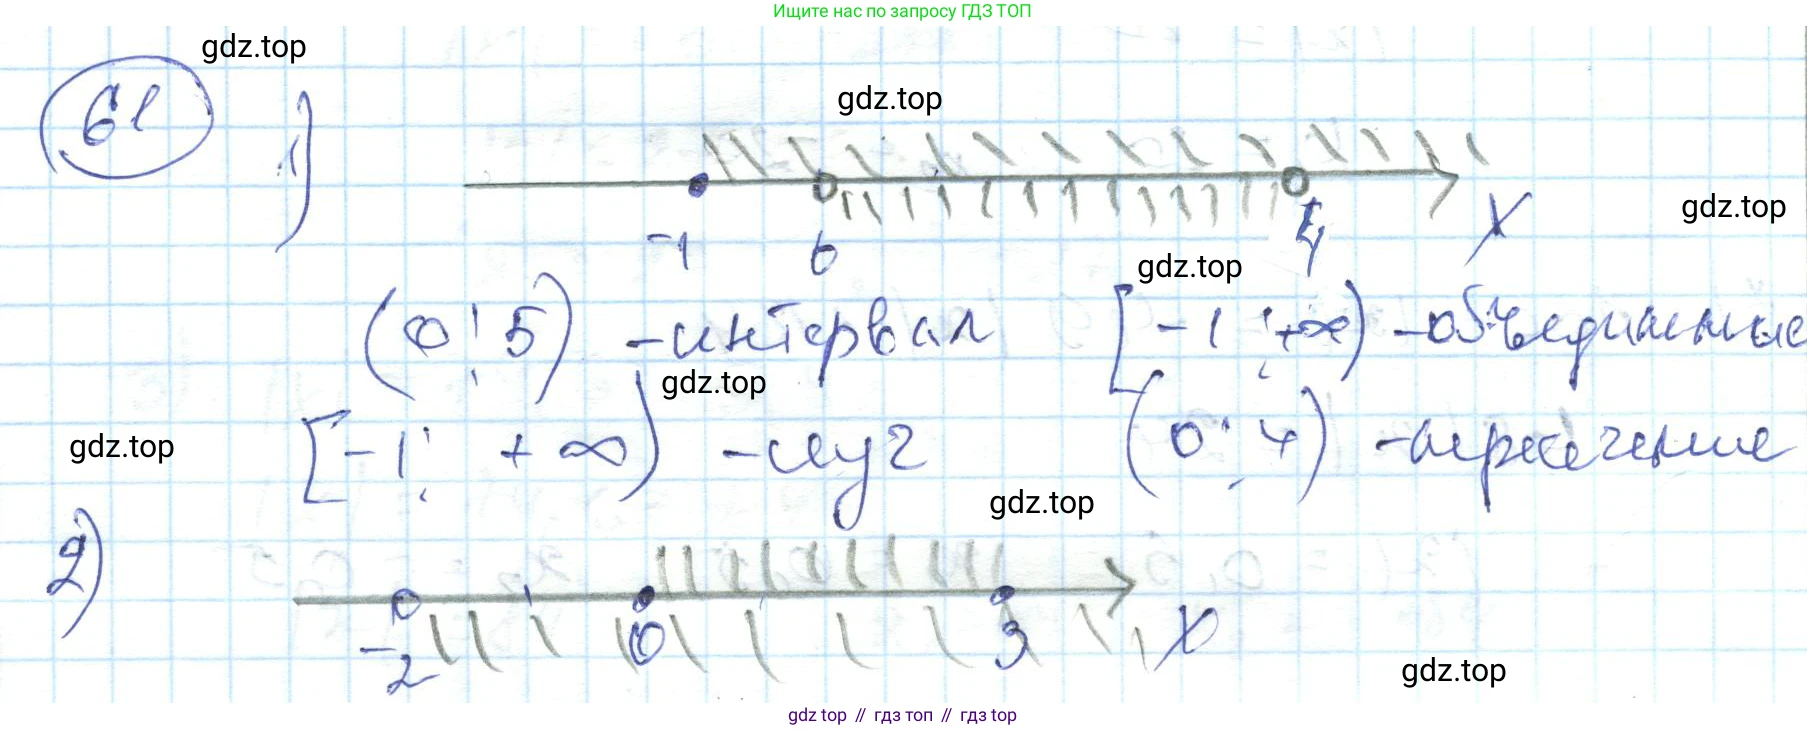 Ищите нас по запросу ГДЗ ТОП
gdz.top
61 1)
gdz.top
gdz.top
-1 0 4 X
gdz.top
(0; 5) - интервал [-1; +∞) - объединение
gdz.top
gdz.top
[-1; +∞) - луч (0; 4) - пересечение
gdz.top
2)
-2 0 3 X
gdz.top
gdz top // гдз топ // gdz top